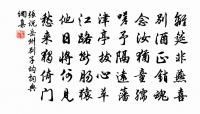 離筵非燕喜
别酒正銷魂
念汝猶童孺
嗟予隔遠藩
津亭拔心草
江路斷腸猿
他日將何見
愁來獨倚門
張說岳州别子均詞典
網集